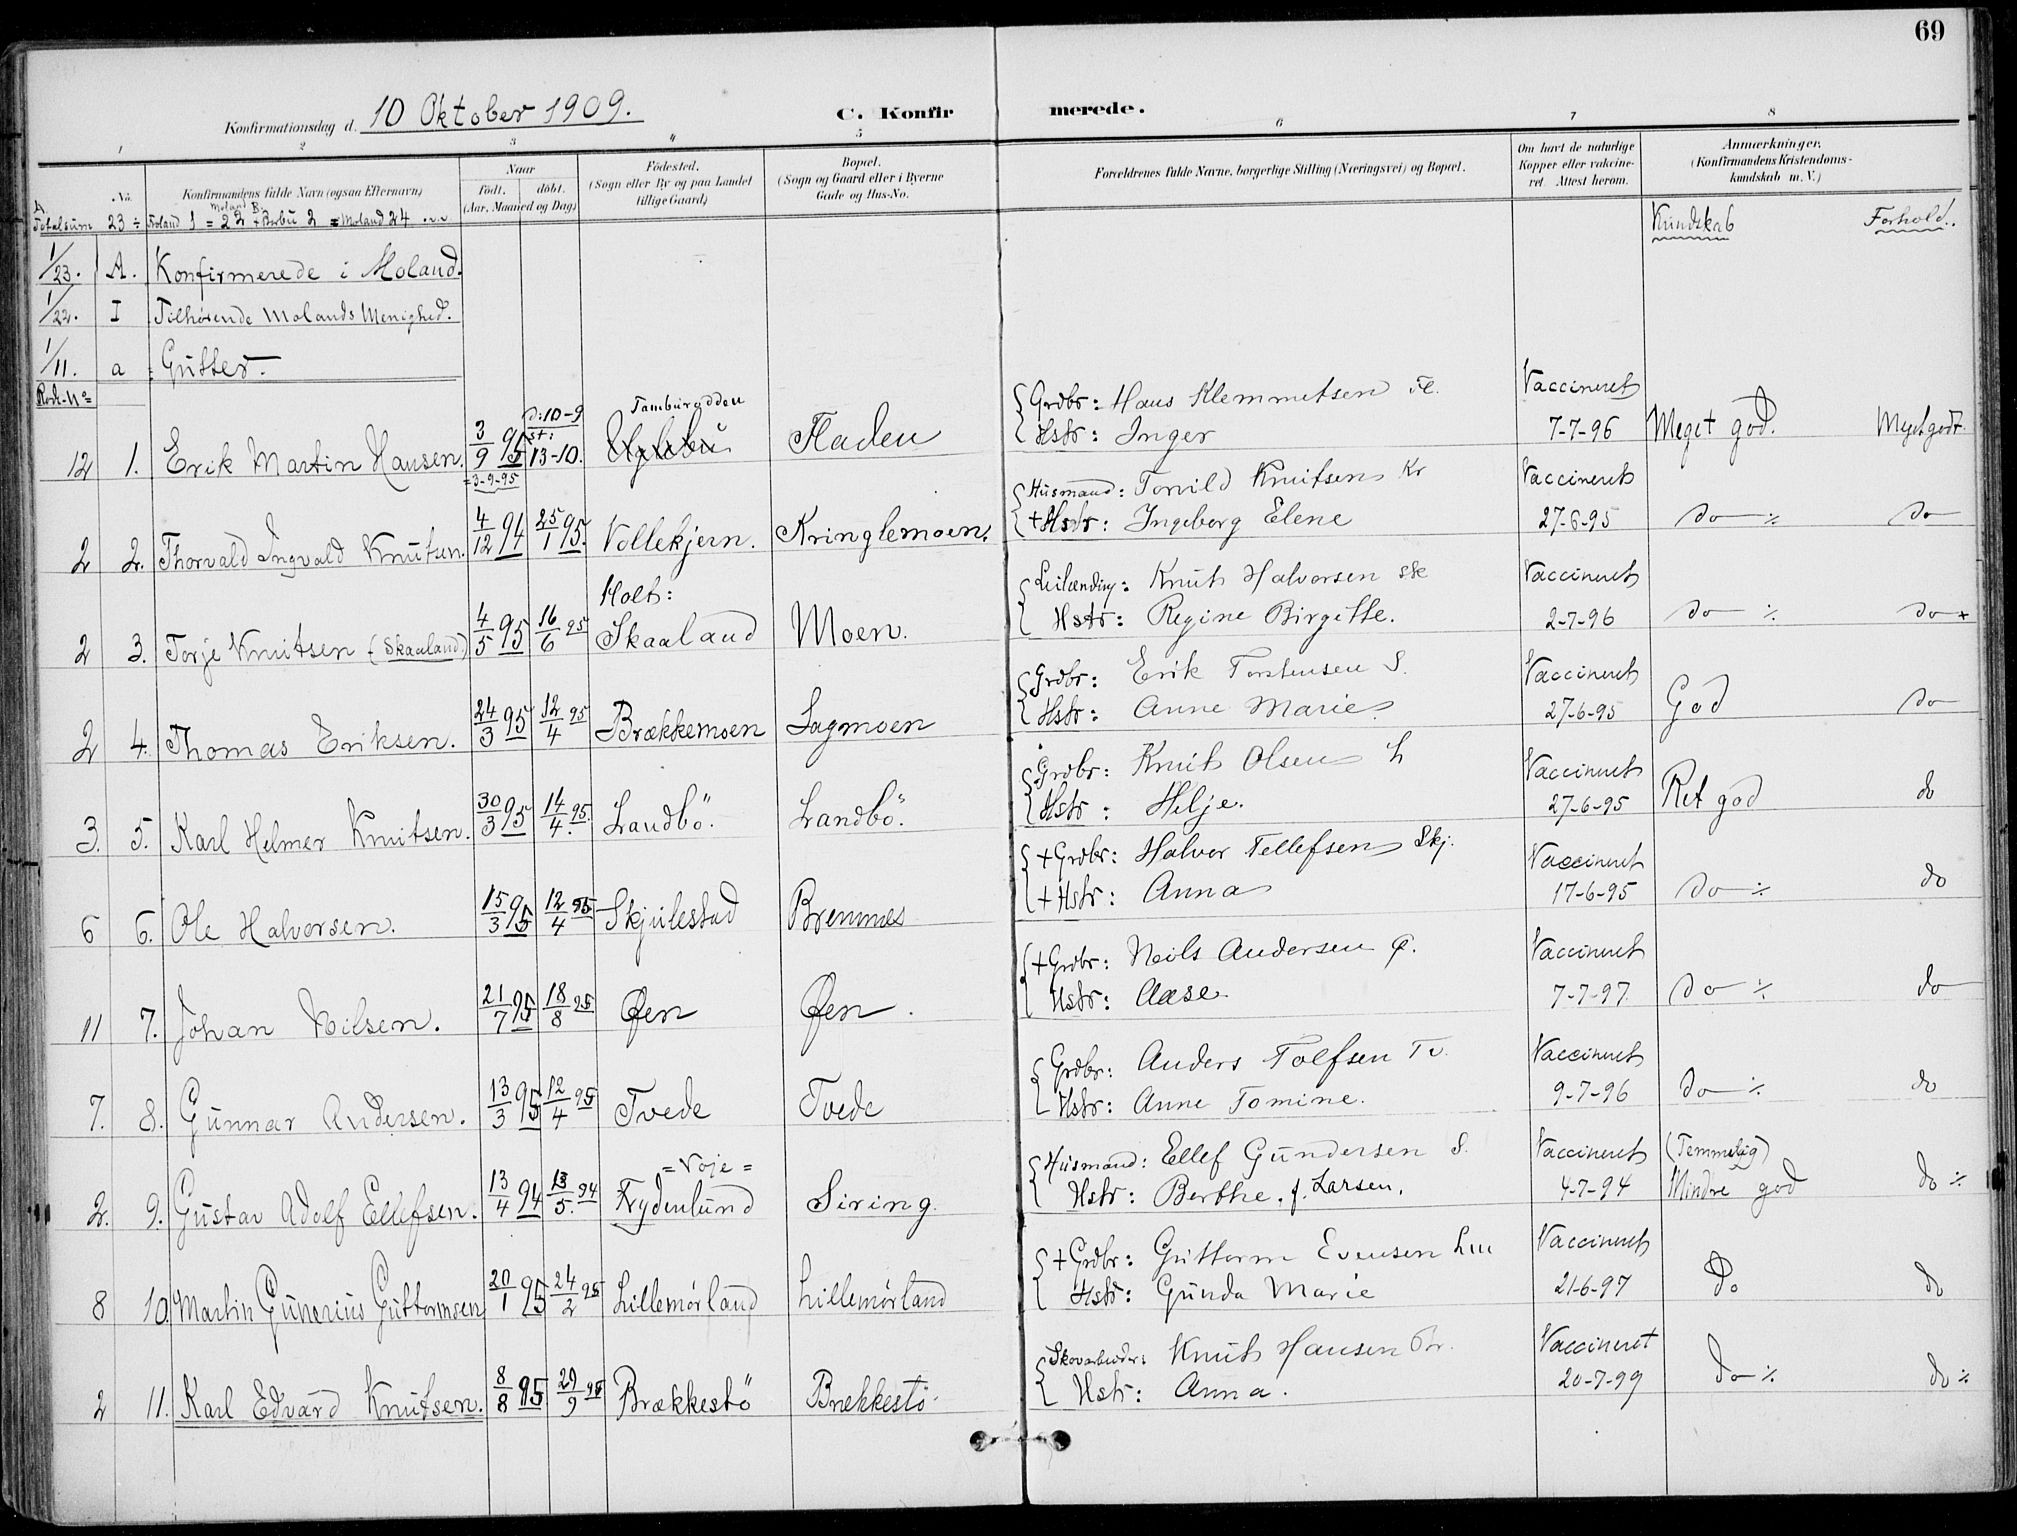 69
Konfirmationsdag d. 10 Oktober 1909. C. Konfirmerede.
1 2 3 4 5 6 7 8
No. Konfirmandens fulde Navn (ogsaa Efternavn) Naar født, døbt. (Aar, Maaned og Dag) Fødested. (Sogn eller By og paa Landet tillige Gaard) Bopæl. (Sogn og Gaard eller i Byerne Gade og Hus-No. Forældrenes fulde Navne, borgerlige Stilling (Næringsvei) og Bopæl. Om havt de naturlige Kopper eller vakcineret. Attest herom. Anmærkninger. (Konfirmandens Kristendomskundskab m. V.)
A. Totalsum 23 ÷ Froland 1 = Moland 22 + B. Herbu 2 = Moland 24
Kundskab Forhold.
1/23. A. Konfirmerede i Moland.
1/22. I Tilhørende Molands Menighed.
1/11. a Gutter.
Rode-No
12 1. Erik Martin Hansen. 3/9 95 =3-9-95 d: 10-9 st: 13-10. Tamburodden Fladen
{Grdbr: Hans Klemmetsen Fl. Vaccineret
Hstr: Inger 7-7-96 Meget god. Mgt godt.
2 2. Thorvald Ingvald Knutsen. 4/12 94 25/1 95. Vollekjern. Kringlemoen.
{Husmand: Torvild Knutsen Kr Vaccineret
+Hstr: Ingeborg Elene 27-6-95 do ٪ do
2 3. Torje Knutsen (Skaaland) 4/5 95 16/6 95 Holt: Skaaland Moen.
{Leilænding: Knut Halvorsen Sk Vaccineret
Hstr: Regine Birgitte. 2-7-96 do ٪ do +
2 4. Thomas Eriksen. 24/3 95 12/4 95 Brækkemoen Lagmoen
{Grdbr: Erik Torstensen S. Vaccineret
Hstr: Anne Marie. 27-6-95 God do
3. 5. Karl Helmer Knutsen. 30/3 95 14/4. 95. Landbö. Landbö.
{Grdbr: Knut Olsen L Vaccineret
Hstr: Helje. 27-6-95 Ret god do
6 6. Ole Halvorsen. 15/3 95 12/4 95 Skjulestad Bremmes
{+Grdbr: Halvor Tellefsen Skj. Vaccineret
+Hstr: Anna 17-6-95 do ٪ do
11 7. Johan Nilsen. 21/7 95 18/8 95 Øen Øen.
{+Grdbr: Neils Andersen Ø. Vaccineret
Hstr: Aase. 7-7-97. do ٪ do
7. 8. Gunnar Andersen. 13/3 95 12/4 95 Tvede Tvede
{Grdbr: Anders Tolfsen Tv. Vaccineret
Hstr: Anne Tomine. 9-7-96 do ٪ do
2. 9. Gustav Adolf Ellefsen. 13/4 94 13/5. 94 =Voje= Frydenlund Siring.
{Husmand: Ellef Gundersen S. Vaccineret (Temmelig)
Hstr: Berthe. f. Larsen. 4-7-94 Mindre god do ٪
8 10. Martin Gunerius Guttormsen 20/1 95 24/2 95 Lillemørland Lillemørland
{+Grdbr: Guttorm Evensen Lm Vaccineret
Hstr: Gunda Marie 21-6-97 Do do
2 11. Karl Edvard Knutsen. 8/8 95 29/9 95 Brækkestö Brekkestö
{Skovarbeider: Knut Hansen Br. Vaccineret
Hstr: Anna. 20-7-99 do ٪ do ٪